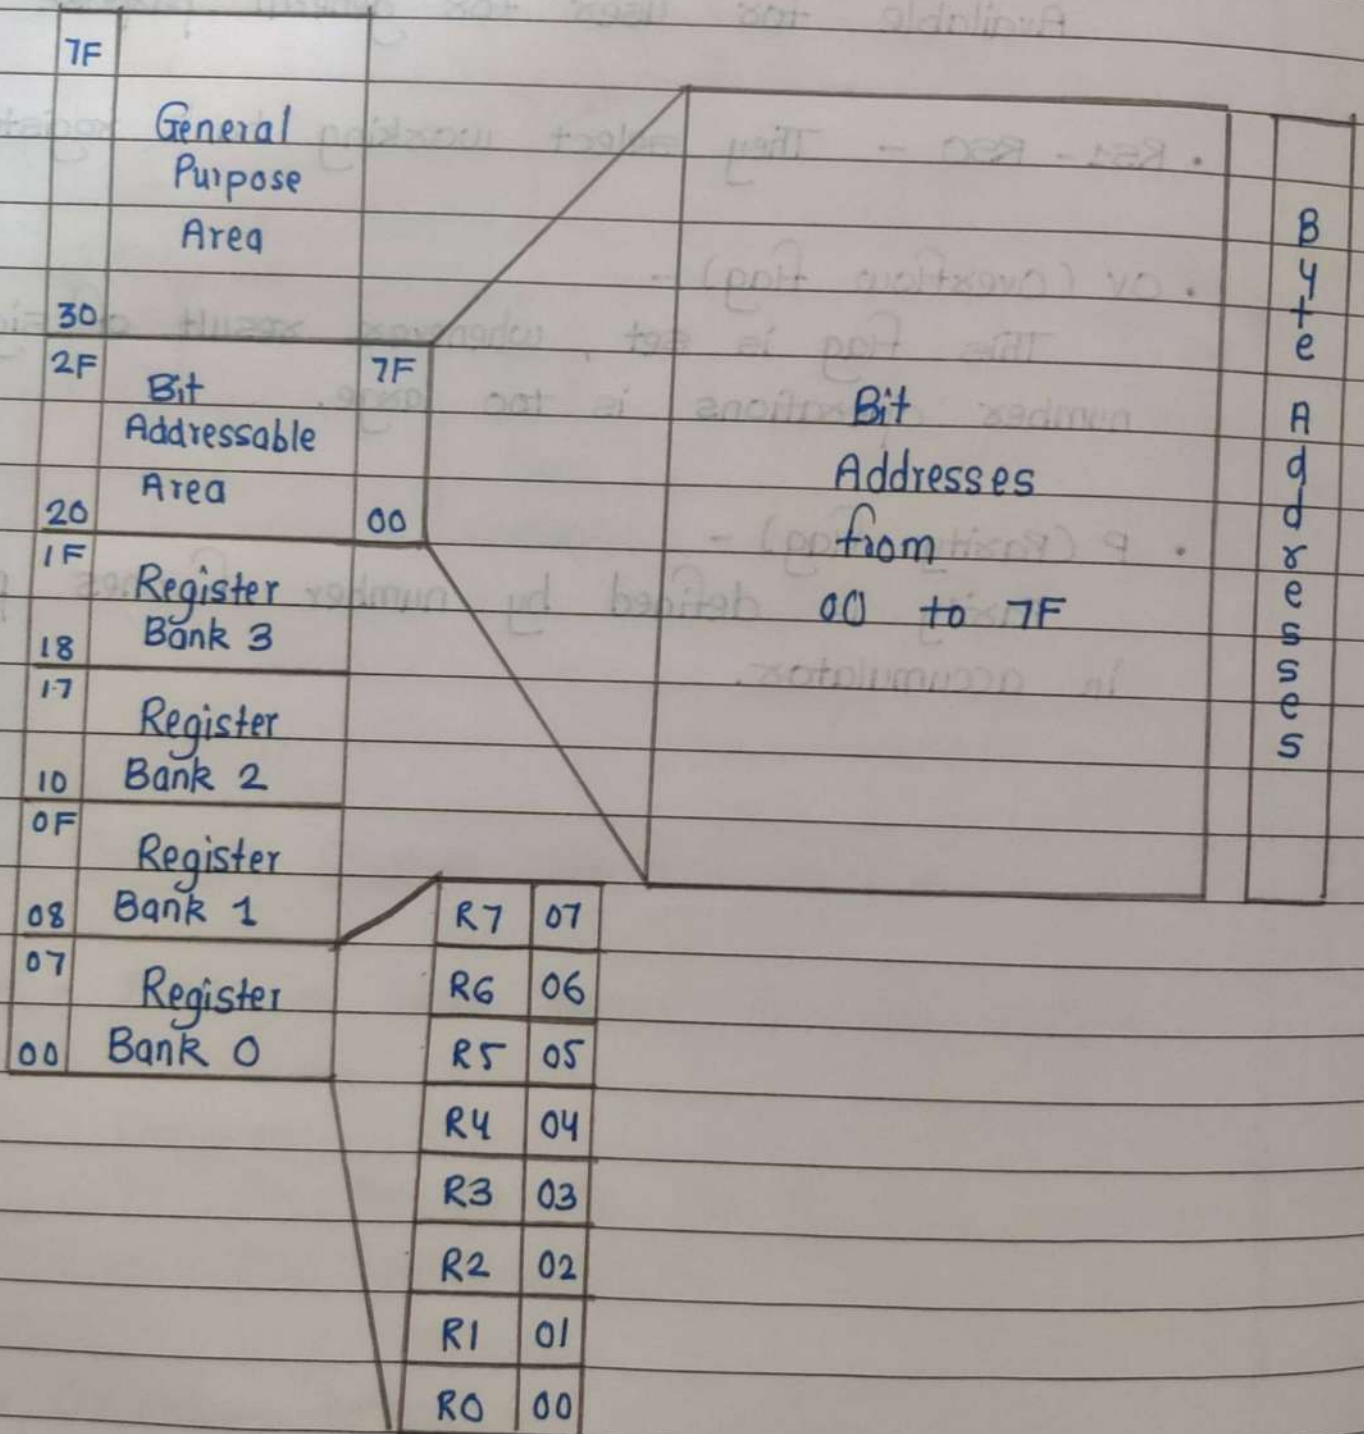 7F
General
Purpose
Area
30
2F
Bit
Addressable
Area
20
7F
00
1F
Register
Bank 3
18
17
Register
Bank 2
10
0F
Register
Bank 1
08
07
Register
Bank 0
00
Bit
Addresses
from
00 to 7F
Byte Addresses
R7 07
R6 06
R5 05
R4 04
R3 03
R2 02
R1 01
R0 00